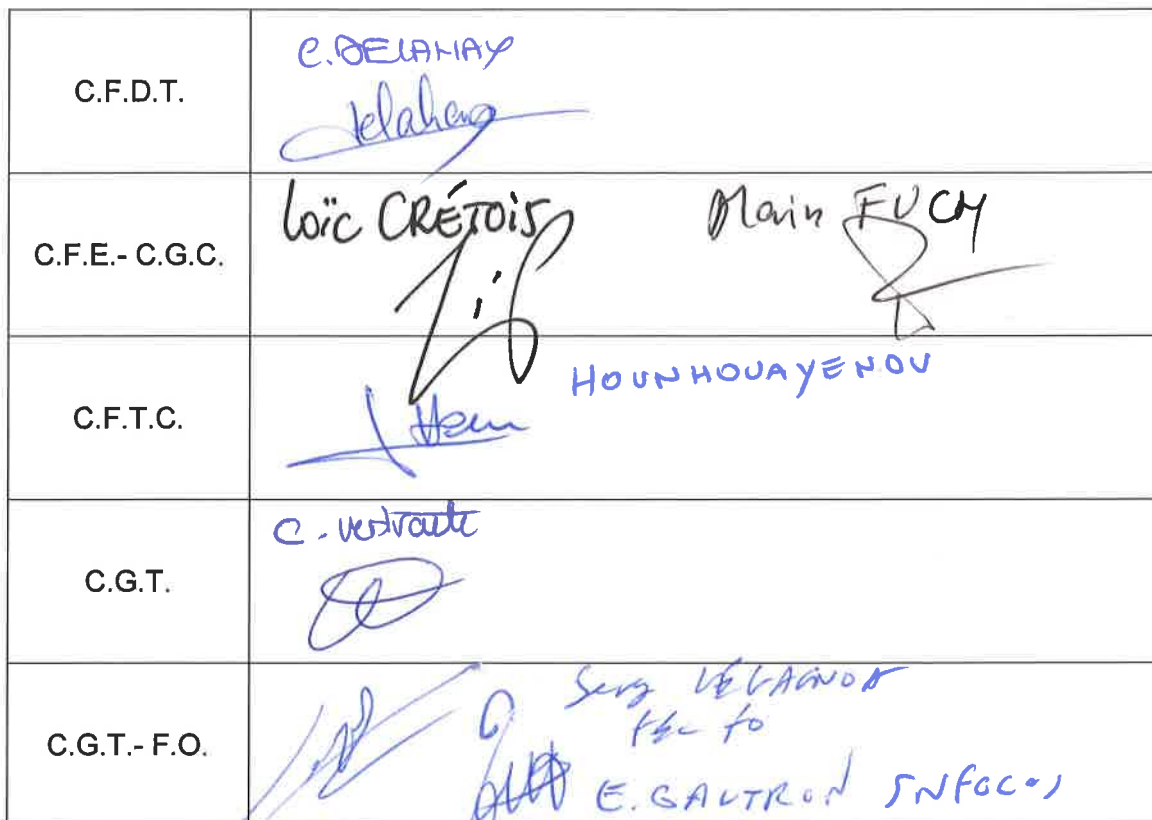 C.F.D.T.
C. DELAHAY
Delahay
C.F.E.- C.G.C.
Loïc CRÉTOIS
Alain FUCH
C.F.T.C.
HOUNHOUAYENOU
C.G.T.
C. Verstraete
C.G.T.- F.O.
Serge LEGAGNOA
FEC FO
E. GAUTRON SNFOCOS